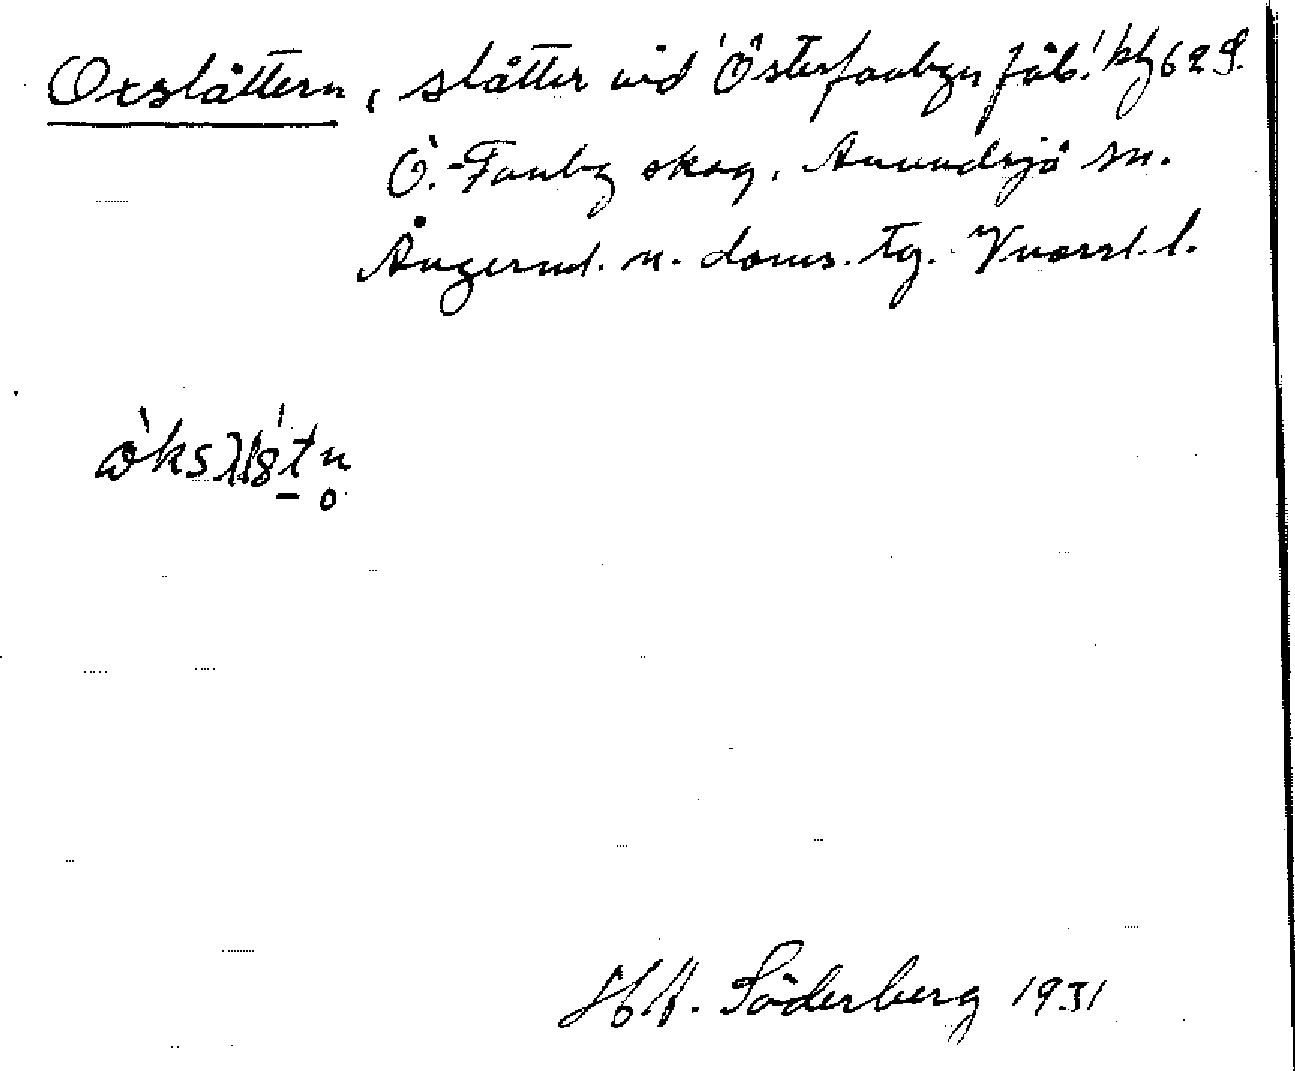 Oxslåttern, slåtter vid 'Österfanbyn fäb.'
Ö.-Fanby skog, Anundsjö sn.
Ångerml. n. doms. tg. Vnorrl. l.
H.A. Söderberg 1931